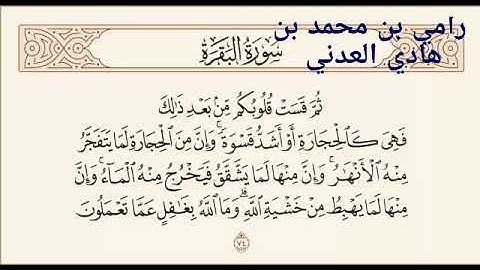 رامي بن محمد بن
هادي العدني
سُورَةُ البَقَرَةِ
ثُمَّ قَسَتْ قُلُوبُكُم مِّنۢ بَعْدِ ذَٰلِكَ
فَهِىَ كَٱلْحِجَارَةِ أَوْ أَشَدُّ قَسْوَةً ۚ وَإِنَّ مِنَ ٱلْحِجَارَةِ لَمَا يَتَفَجَّرُ
مِنْهُ ٱلْأَنْهَٰرُ ۚ وَإِنَّ مِنْهَا لَمَا يَشَّقَّقُ فَيَخْرُجُ مِنْهُ ٱلْمَآءُ ۚ وَإِنَّ
مِنْهَا لَمَا يَهْبِطُ مِنْ خَشْيَةِ ٱللَّهِ ۗ وَمَا ٱللَّهُ بِغَٰفِلٍ عَمَّا تَعْمَلُونَ
٧٤